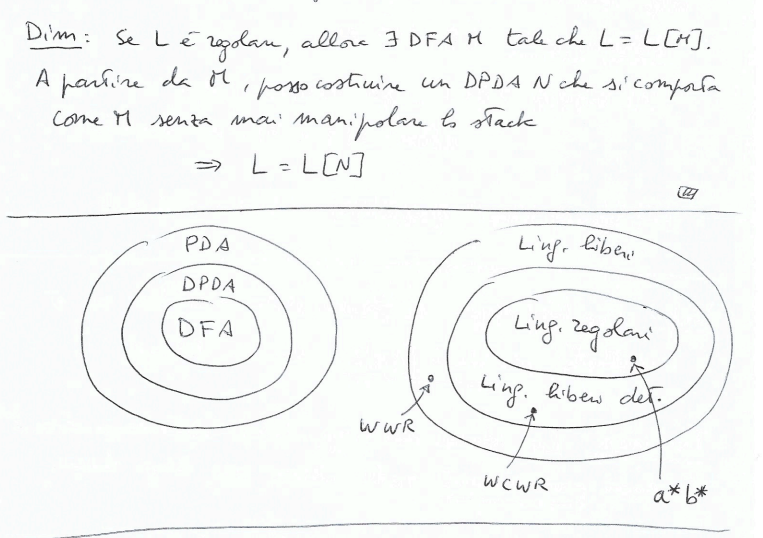 Dim: Se L è regolare, allora ∃ DFA M tale che L = L[M].
A partire da M, posso costruire un DPDA N che si comporta
come M senza mai manipolare lo stack
⇒ L = L[N]
PDA
DPDA
DFA
Ling. liberi
Ling. regolari
Ling. liberi det.
WWR
WCWR
a*b*